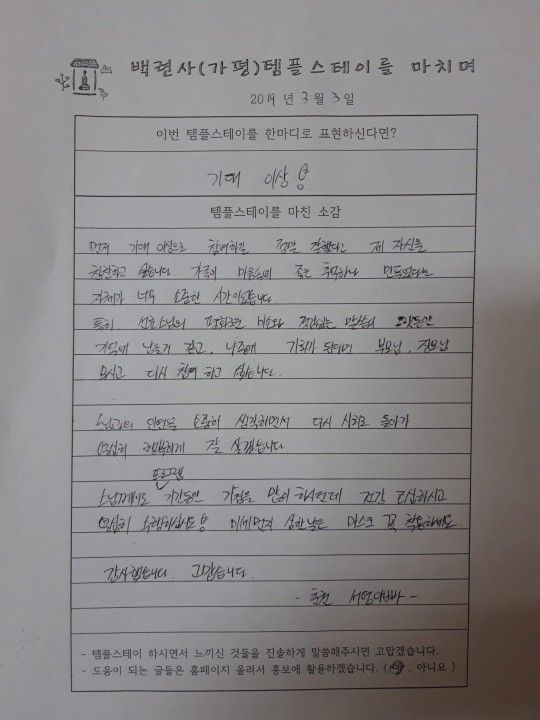 백련사(가평)템플스테이를 마치며
2019 년 3 월 3 일
이번 템플스테이를 한마디로 표현하신다면?
기대 이상
템플스테이를 마친 소감
먼저 기대 이상으로 참여하길 정말 잘했다고 제 자신을
칭찬하고 싶습니다. 가족의 마음속에 좋은 추억하나 만들었다는
자체가 너무 소중한 시간이었습니다.
특히, 스님의 평화로운 미소와 말씀이 오랫동안
기억에 남을거 같고, 나중에 기회가 된다면 부모님, 장모님
모시고 다시 참여 하고 싶습니다.
스님과의 인연을 소중히 생각하면서 다시 사회로 돌아가
열심히 행복하게 잘 살겠습니다.
프로그램
스님께서도 기간동안 기침을 많이 하시던데 건강 조심하시고
열심히 수행하십시요 미세먼지 심한날은 마스크 꼭 착용하세요.
감사했습니다. 고맙습니다.
- 춘천 -
- 템플스테이 하시면서 느끼신 것들을 진솔하게 말씀해주시면 고맙겠습니다.
- 도움이 되는 글들은 홈페이지 올려서 홍보에 활용하겠습니다. ( 예 . 아니요 )